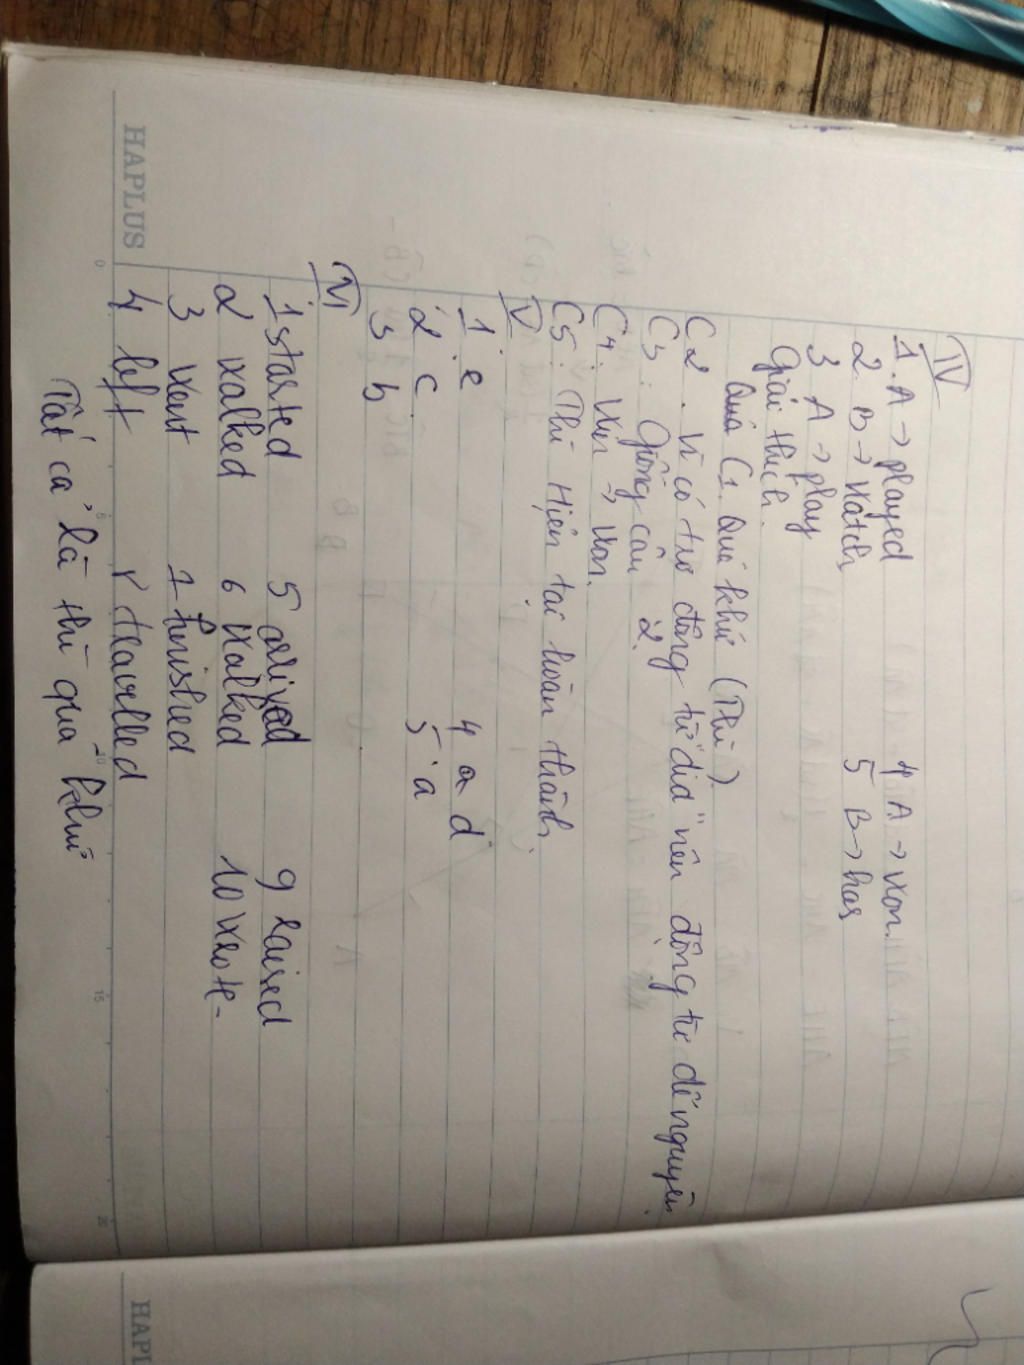 IV
1. A → played 4 A → won.
2. B → watch 5 B → has
3 A → play
Giải thích.
Quá C1. Quá khứ (Thì).
C2. Vì có trợ động từ "did" nên động từ để nguyên.
C3: Giống câu 2.
C4: Win → won.
C5: Thì Hiện tại hoàn thành.
V
1. e 4 d
2 c. 5 a
3 b
VI
1 started 5 arrived 9 raised
2 walked 6 walked 10 wrote-
3 went 7 finished
4 left 8 travelled
Tất cả là thì quá khứ
HAPLUS
0 5 10 15 20